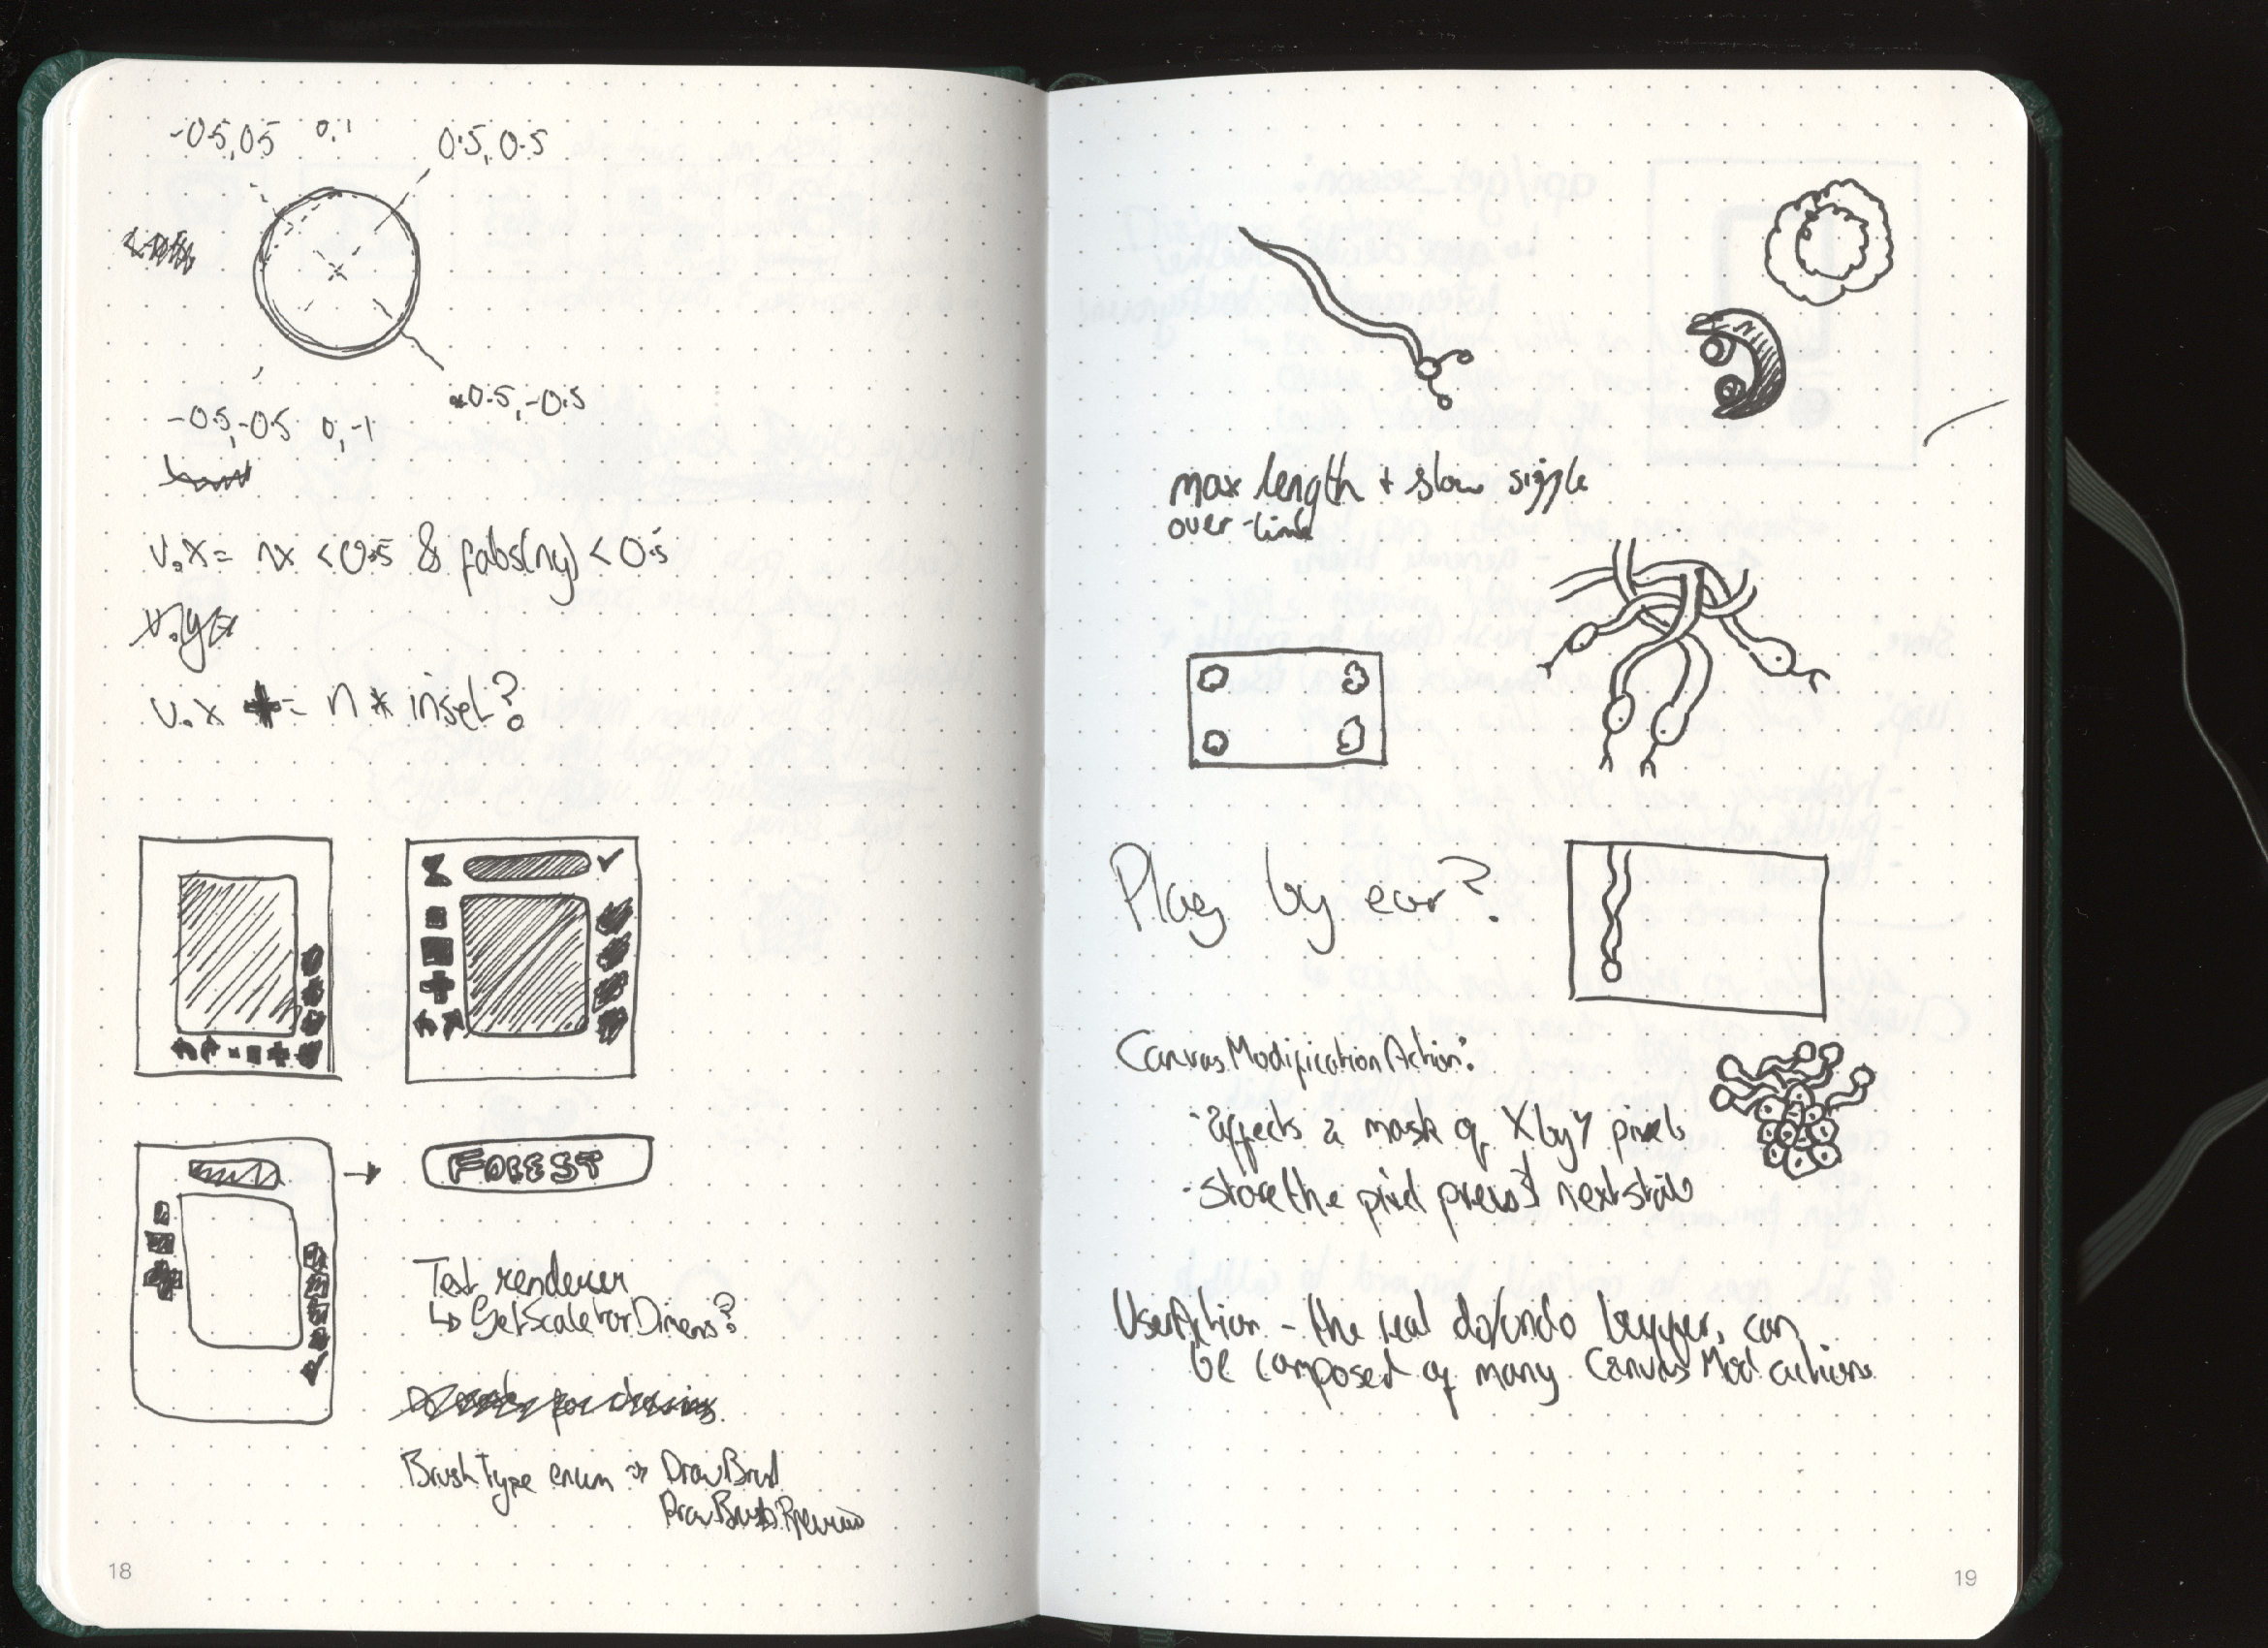 -0.5,0.5 0,1 0.5,0.5
0.5,-0.5
-0.5,-0.5 0,-1
v.x = nx <0.5 & fabs(ny) < 0.5
v.y=
v.x += n * inset?
FOREST
Text renderer
↳ GetScaleForDimens?
for drawing
BrushType enum → DrawBrush
DrawBrushPreview
18
max length + slow
over-time
Play by ear?
CanvasModificationAction:
- affects a mask of X by Y pixels
- store the pixel prev & next state
UserAction - the real do/undo buffer, can
be composed of many CanvasMod actions
19